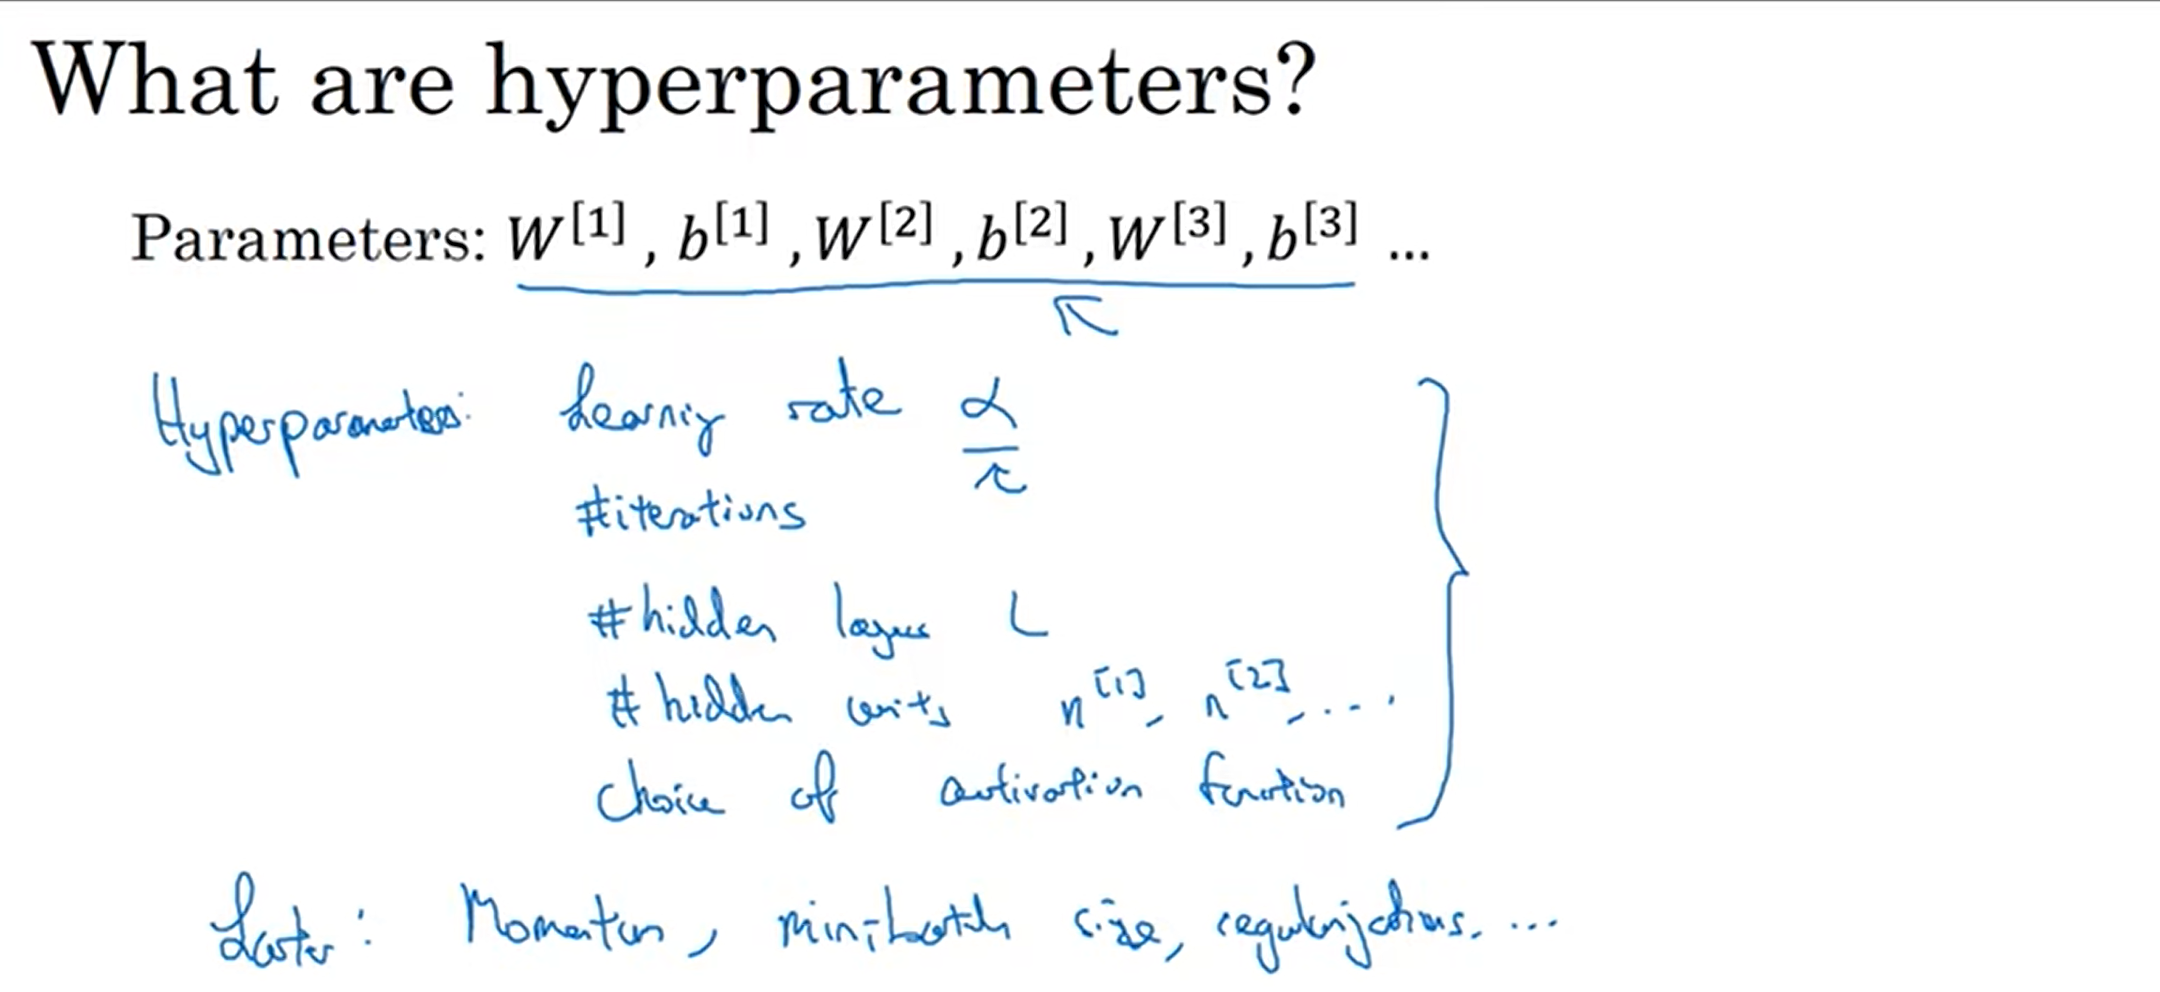 What are hyperparameters?
Parameters: W[1] , b[1] , W[2] , b[2] , W[3] , b[3] ...
Hyperparameters: Learning rate α
#iterations
#hidden layers L
#hidden units n[1], n[2], ....
Choice of activation function
Later: Momentum, mini-batch size, regularizations, ...